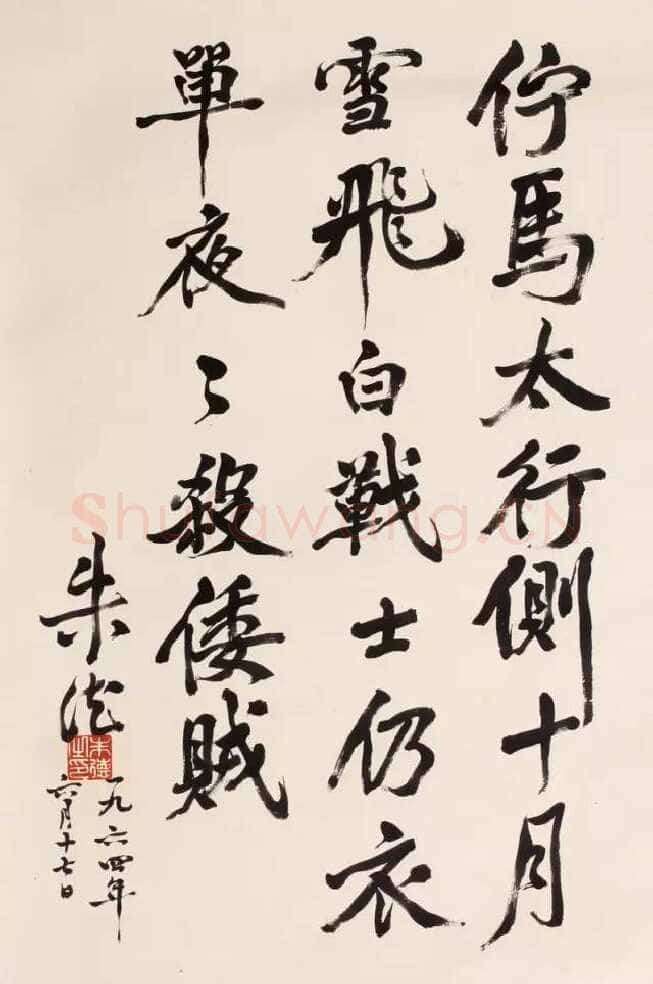 佇馬太行側十月
雪飛白戰士仍衣
單夜〻殺倭賊
朱德
一九六四年
六月十七日
朱德之印
Shufawang.CN